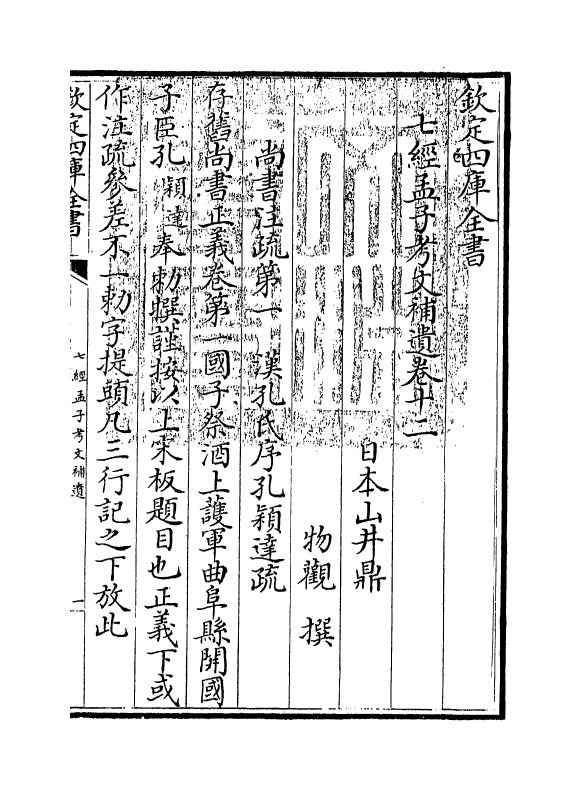 欽定四庫全書
七經孟子考文補遺卷十二
日本山井鼎
物觀 撰
尚書注疏第一 漢孔氏序孔穎達疏
存舊尚書正義卷第一國子祭酒上護軍曲阜縣開國
子臣孔穎達奉勅撰謹按以上宋板題目也正義下或
作注疏參差不一勅字提頭凡三行記之下放此
欽定四庫全書
七經孟子考文補遺
一